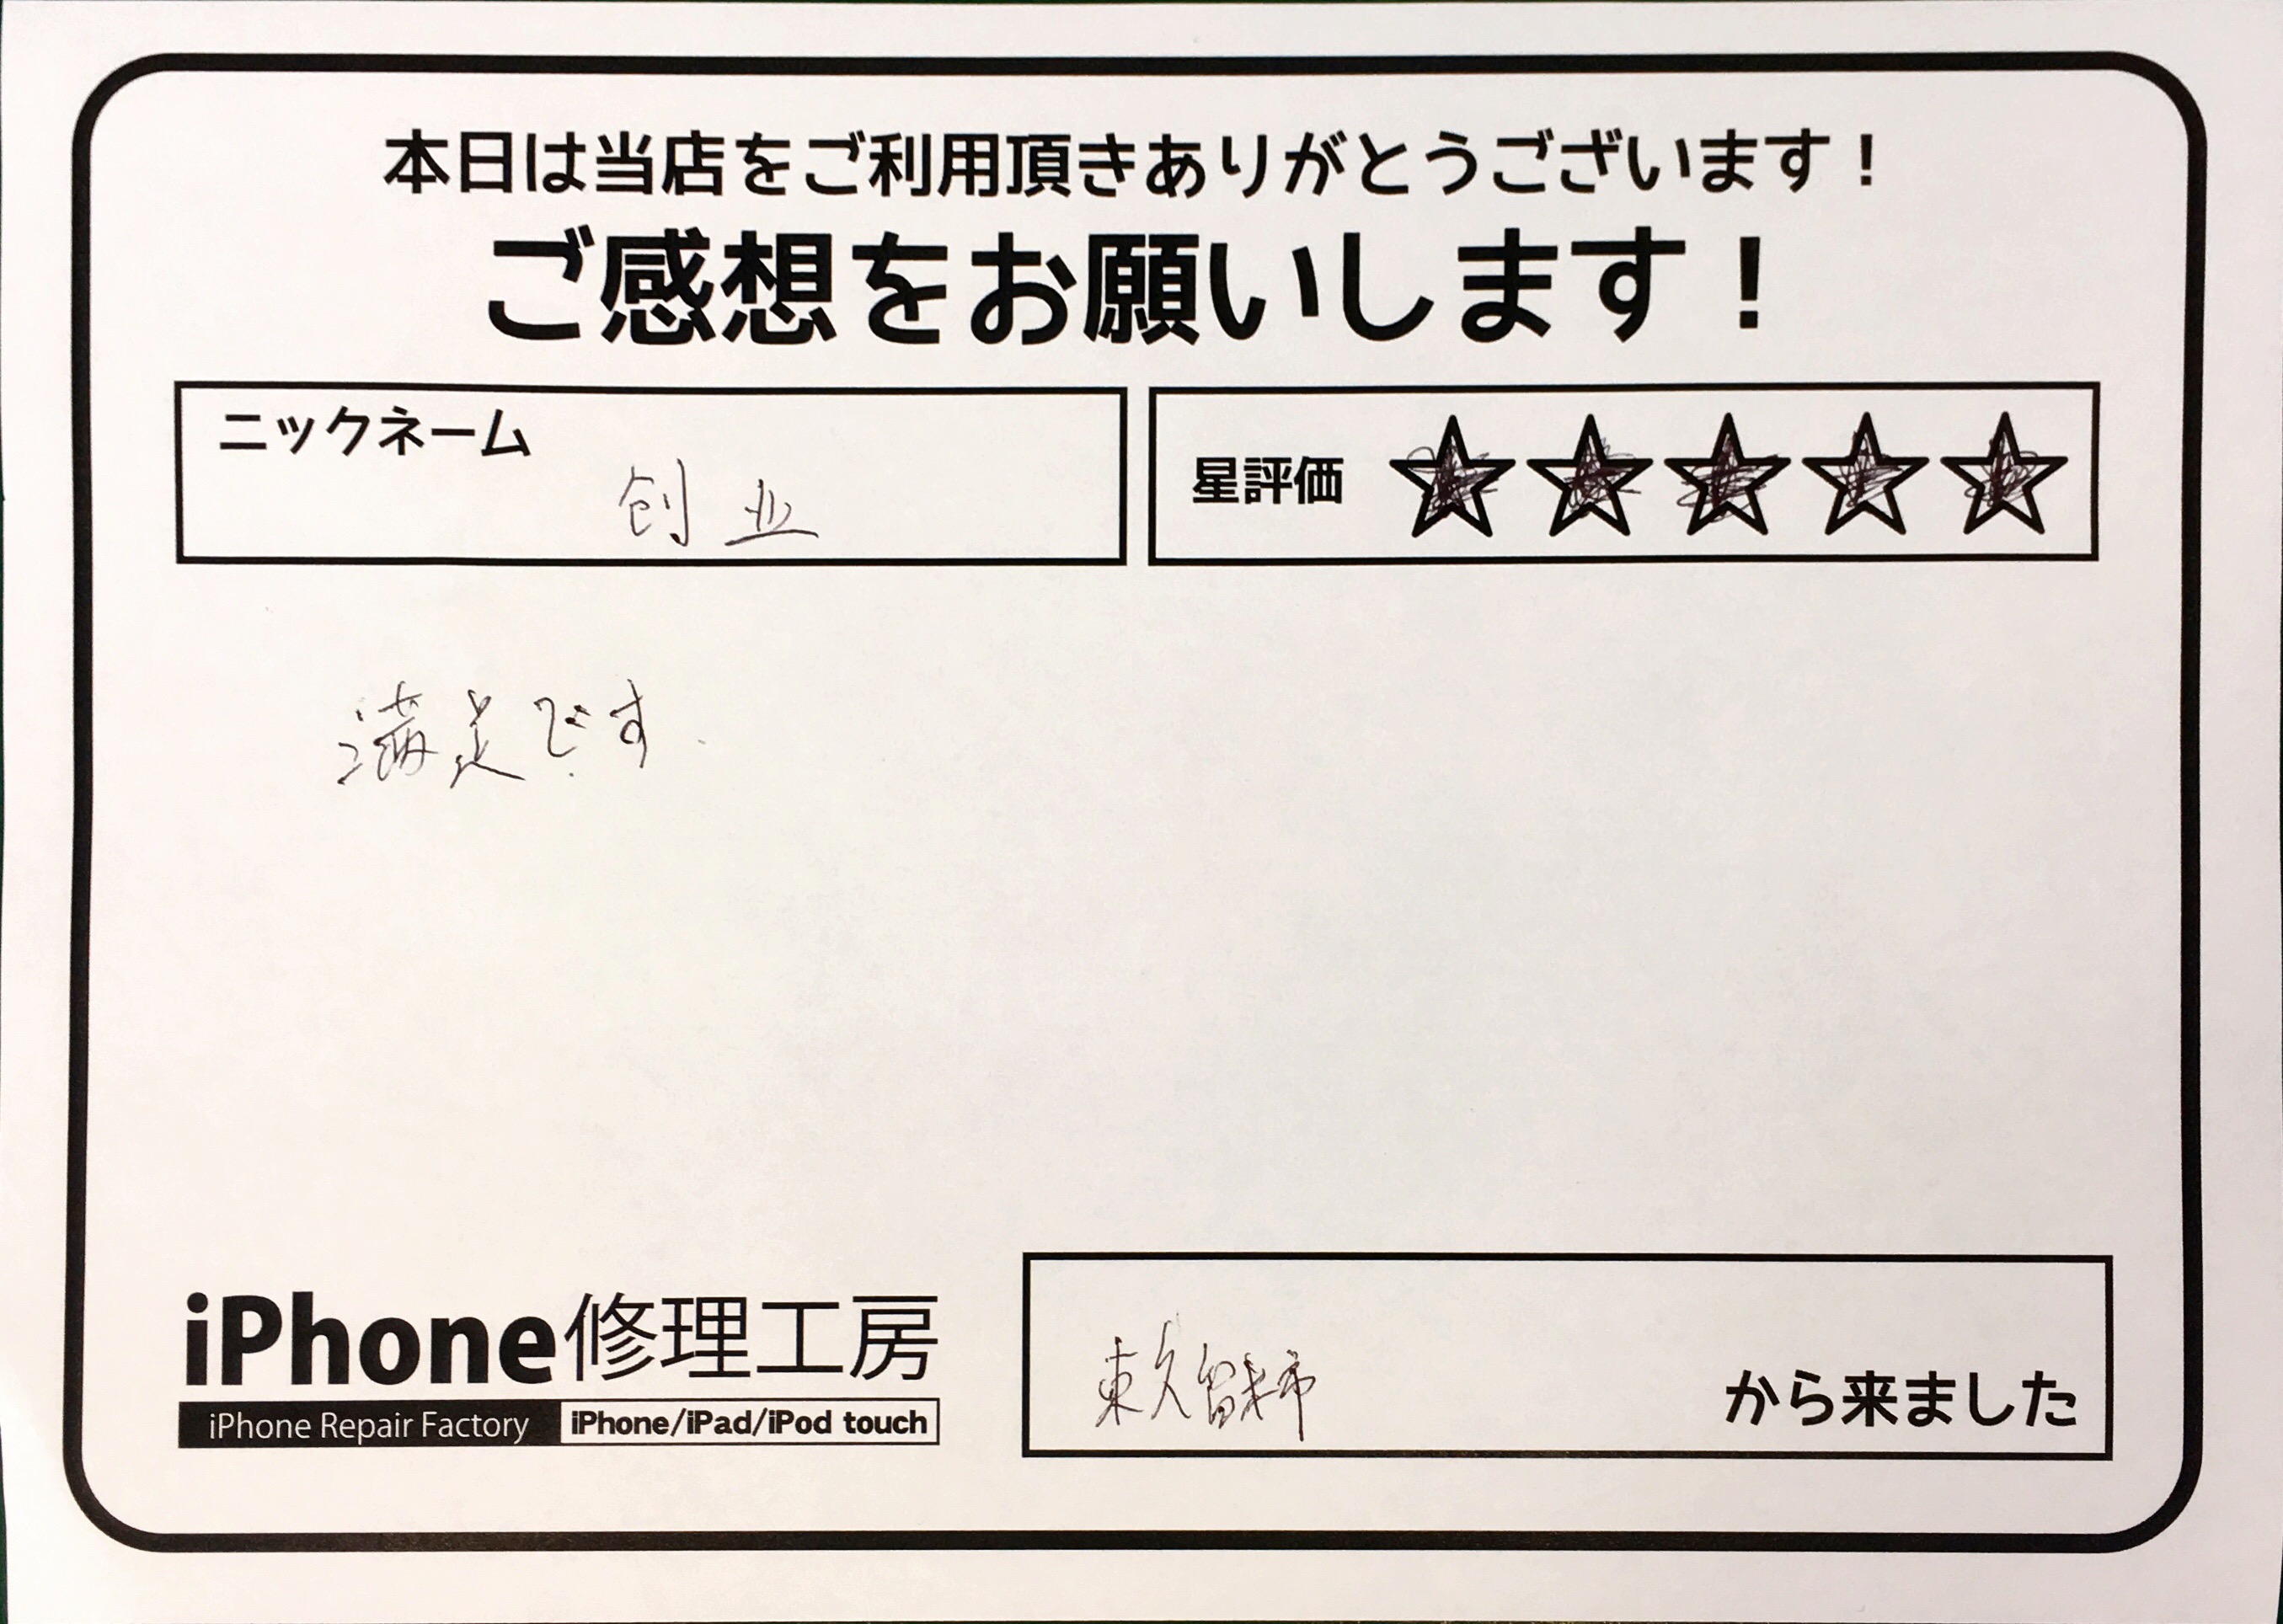 本日は当店をご利用頂きありがとうございます！
ご感想をお願いします！
ニックネーム
创业
星評価 ★★★★★
満足です.
iPhone修理工房
iPhone Repair Factory iPhone/iPad/iPod touch
東久留米市 から来ました